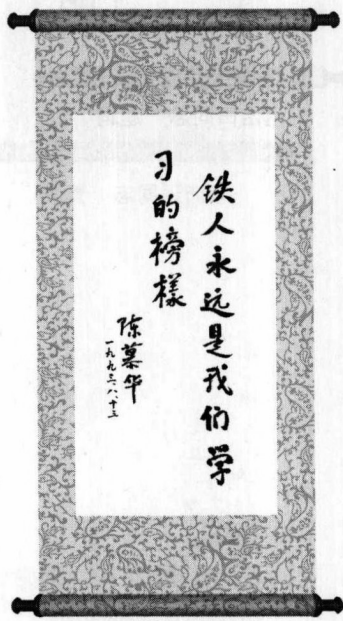 铁人永远是我们学
习的榜样
陈慕华
一九九三.八.十三